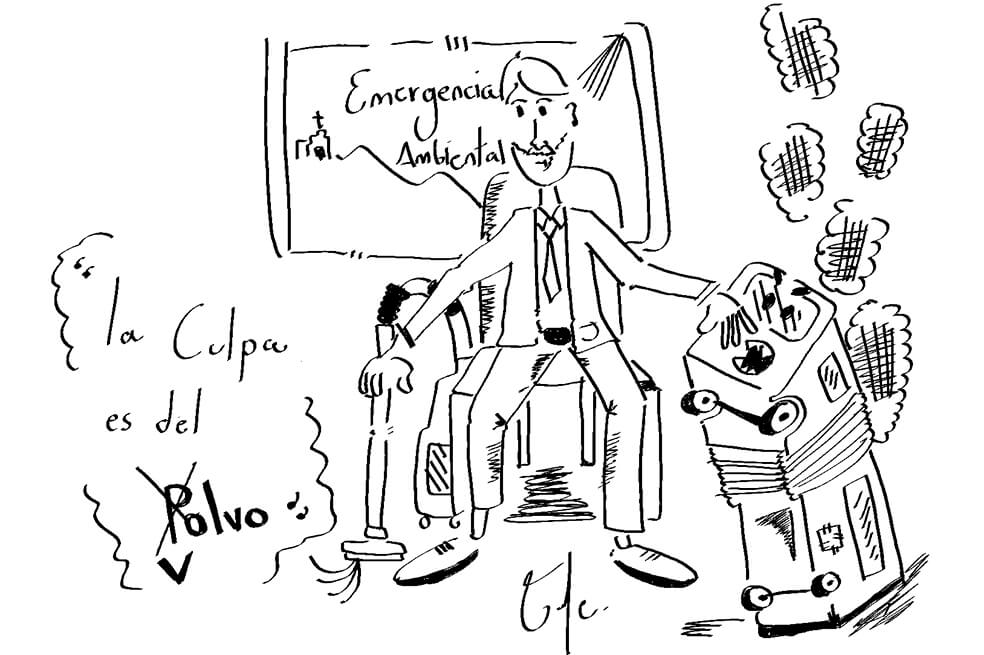 Emergencia
Ambiental
“la Culpa
es del
Polvo”
V